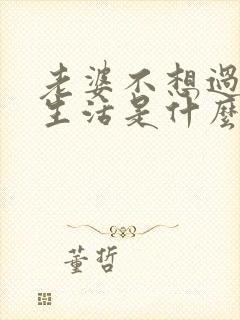 老婆不想過
生活是什麼
董哲